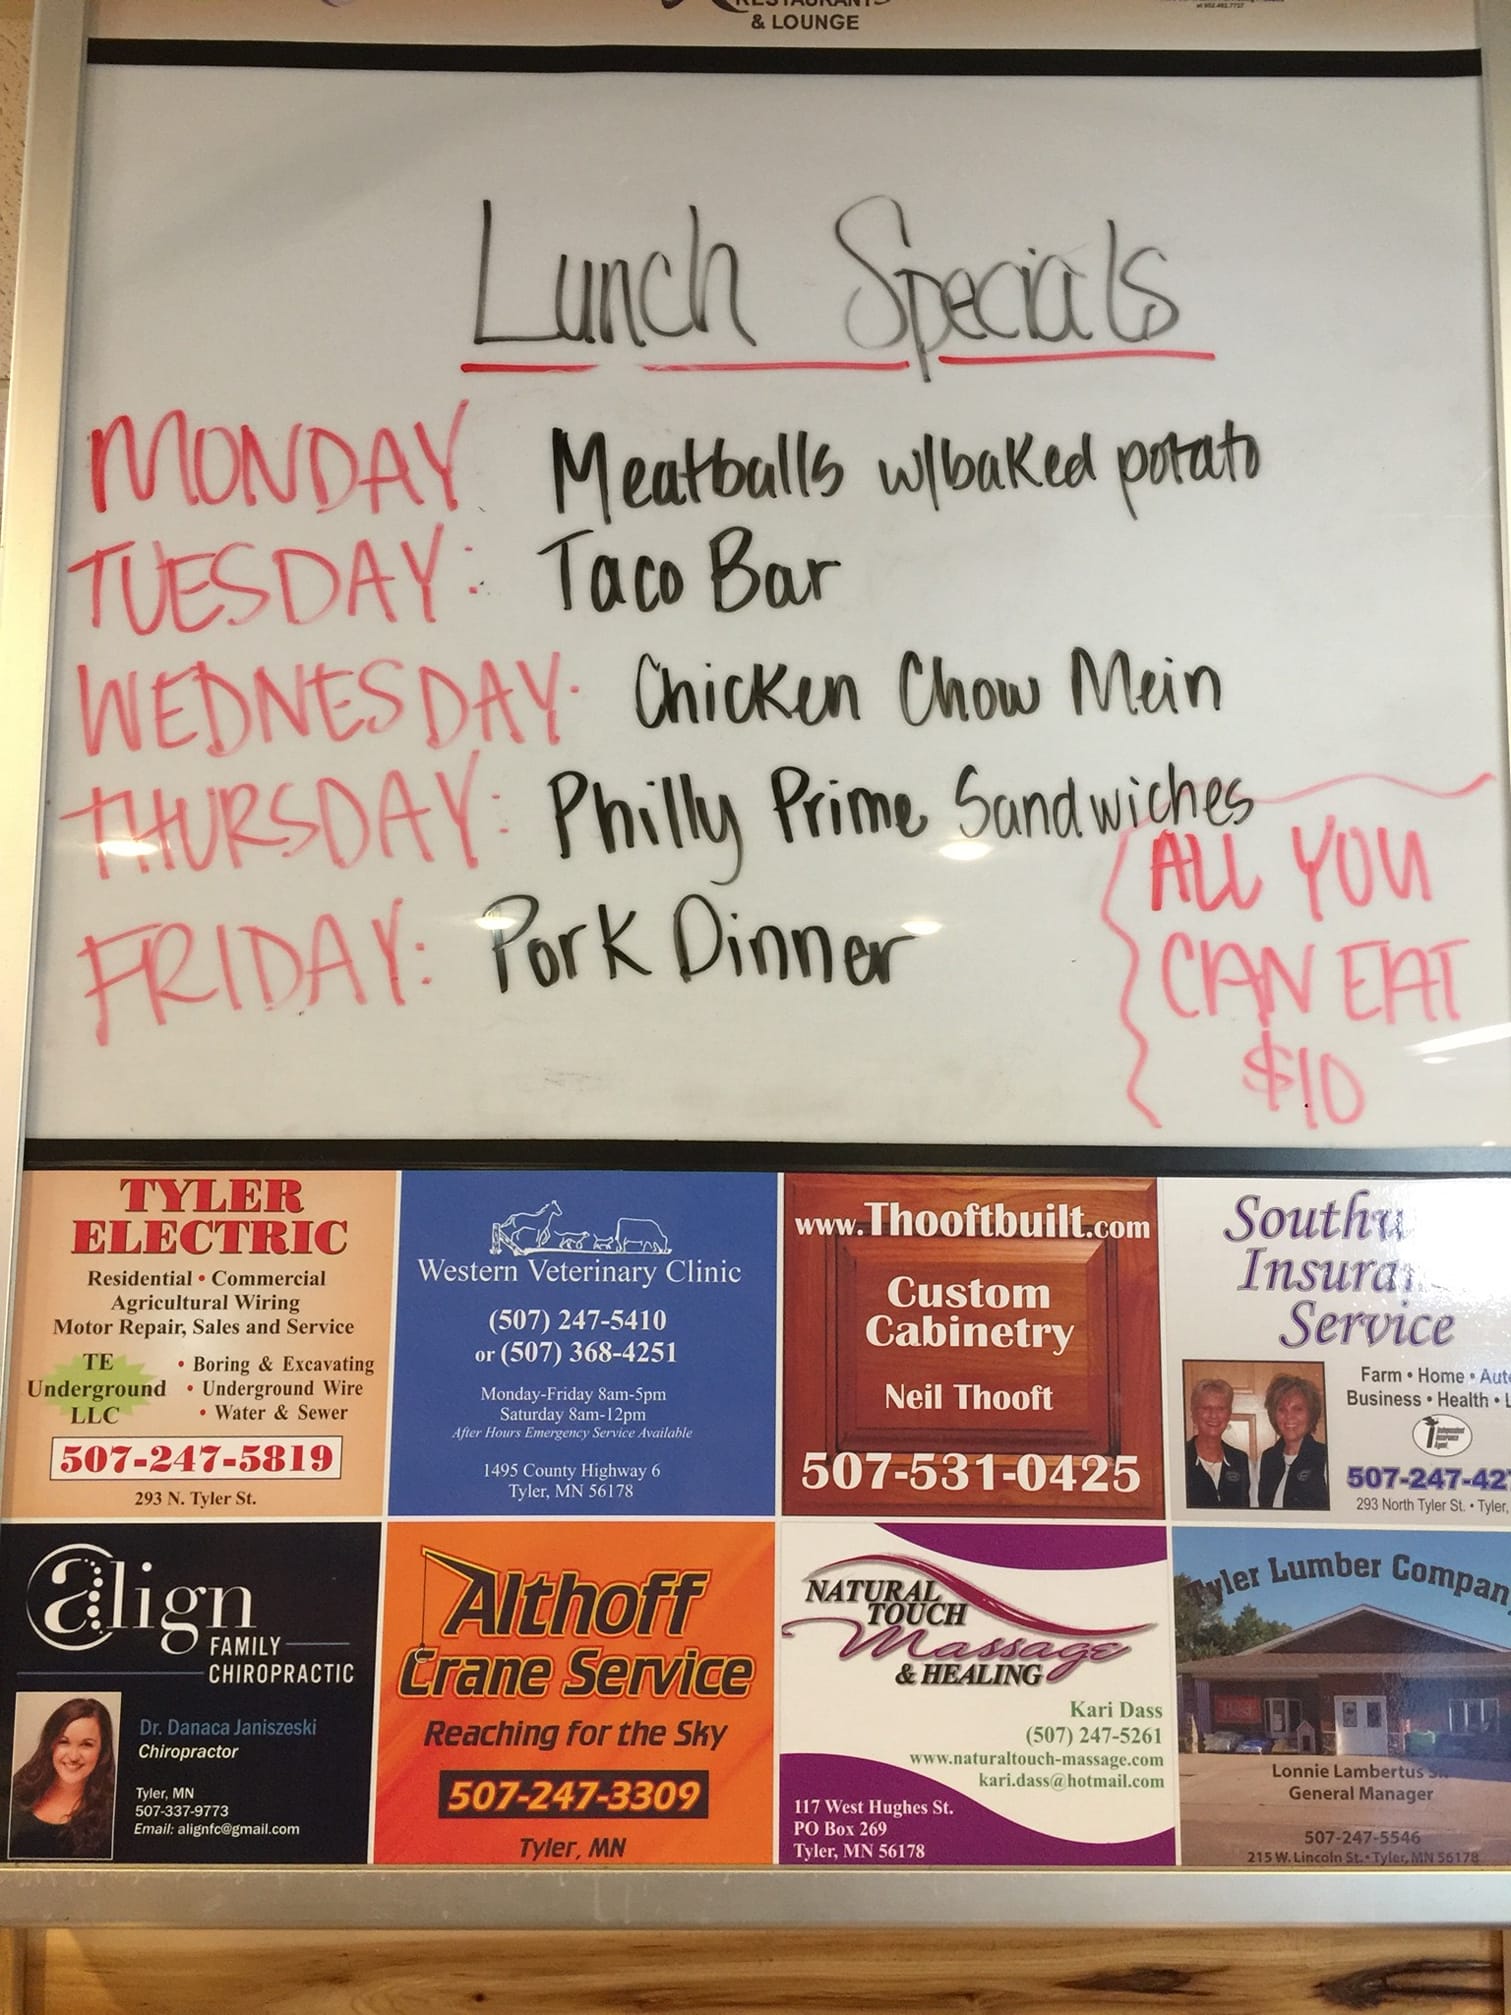 RESTAURANT
& LOUNGE
Lunch Specials
MONDAY Meatballs w/baked potato
TUESDAY: Taco Bar
WEDNESDAY: Chicken Chow Mein
THURSDAY: Philly Prime Sandwiches
FRIDAY: Pork Dinner
ALL YOU
CAN EAT
$10
TYLER
ELECTRIC
Residential • Commercial
Agricultural Wiring
Motor Repair, Sales and Service
TE
Underground
LLC
• Boring & Excavating
• Underground Wire
• Water & Sewer
507-247-5819
293 N. Tyler St.
Western Veterinary Clinic
(507) 247-5410
or (507) 368-4251
Monday-Friday 8am-5pm
Saturday 8am-12pm
After Hours Emergency Service Available
1495 County Highway 6
Tyler, MN 56178
www.Thooftbuilt.com
Custom
Cabinetry
Neil Thooft
507-531-0425
Southw
Insuran
Service
Farm • Home • Auto
Business • Health • L
Independent
Insurance
Agent
507-247-42
293 North Tyler St. • Tyler,
align
FAMILY
CHIROPRACTIC
Dr. Danaca Janiszeski
Chiropractor
Tyler, MN
507-337-9773
Email: alignfc@gmail.com
Althoff
Crane Service
Reaching for the Sky
507-247-3309
Tyler, MN
NATURAL
TOUCH
Massage
& HEALING
Kari Dass
(507) 247-5261
www.naturaltouch-massage.com
kari.dass@hotmail.com
117 West Hughes St.
PO Box 269
Tyler, MN 56178
Tyler Lumber Compan
Lonnie Lambertus Sr.
General Manager
507-247-5546
215 W. Lincoln St. • Tyler, MN 56178